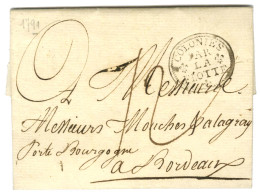 1791
COLONIES
PAR
LA
Messieurs
Messieurs Mouches Palagray
Porte Bourgogne
a Bordeaux